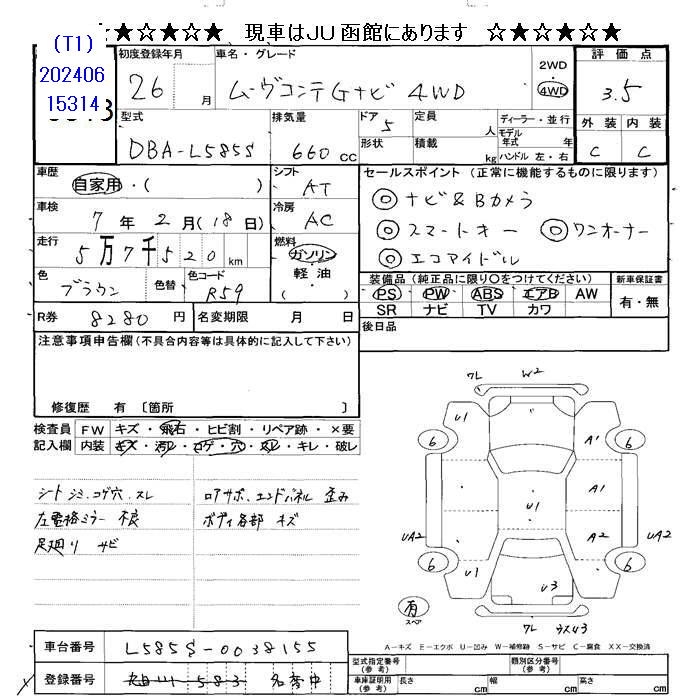 ☆★☆★☆ 現車はJU函館にあります ☆★☆★☆
(T1)
202406
15314
初度登録年月 車名・グレード 2WD 評価点
26 月 ムーヴコンテGナビ 4WD 4WD 3.5
型式 排気量 ドア 定員 ディーラー・並行 外装 内装
DBA-L585S 660 CC 5 人 モデル年式 年
形状 積載 kg ハンドル 左・右 C C
車歴 シフト セールスポイント(正常に機能するものに限ります)
自家用・( ) AT ◎ナビ&Bカメラ
車検 冷房 ◎スマートキー ◎ワンオーナー
7年2月(18日) AC ◎エコアイドル
走行 燃料
5万7千520km ガソリン
色 色替 色コード 軽油 装備品(純正品に限り○をつけてください) 新車保証書
ブラウン R59 ( ) PS PW ABS エアB AW 有・無
R券 8280円 名変期限 月 日 SR ナビ TV カワ
注意事項申告欄(不具合内容等は具体的に記入して下さい) 後日品
修復歴 有〔箇所 〕
検査員 FW キズ・飛石・ヒビ割・リペア跡・×要
記入欄 内装 キズ・汚レ・コゲ・穴・スレ・キレ・破レ
シート シミ、コゲ穴、スレ ロアサポ、エンドパネル 歪み
左電格ミラー 不良 ボディ各部 キズ
足廻り サビ
ワレ W2
U1
6 A1 6
A1
U1
UA2 A2 UA2
6 U1 6
U3
有
スペア
ワレ
A-キズ E-エクボ U-凹み W-補修跡 S-サビ C-腐食 XX-交換済
車台番号 L585S-0038155
登録番号 旭川 583
型式指定番号(参考) 類別区分番号(参考)
車庫証明用(参考) 長さ cm 幅 cm 高さ cm